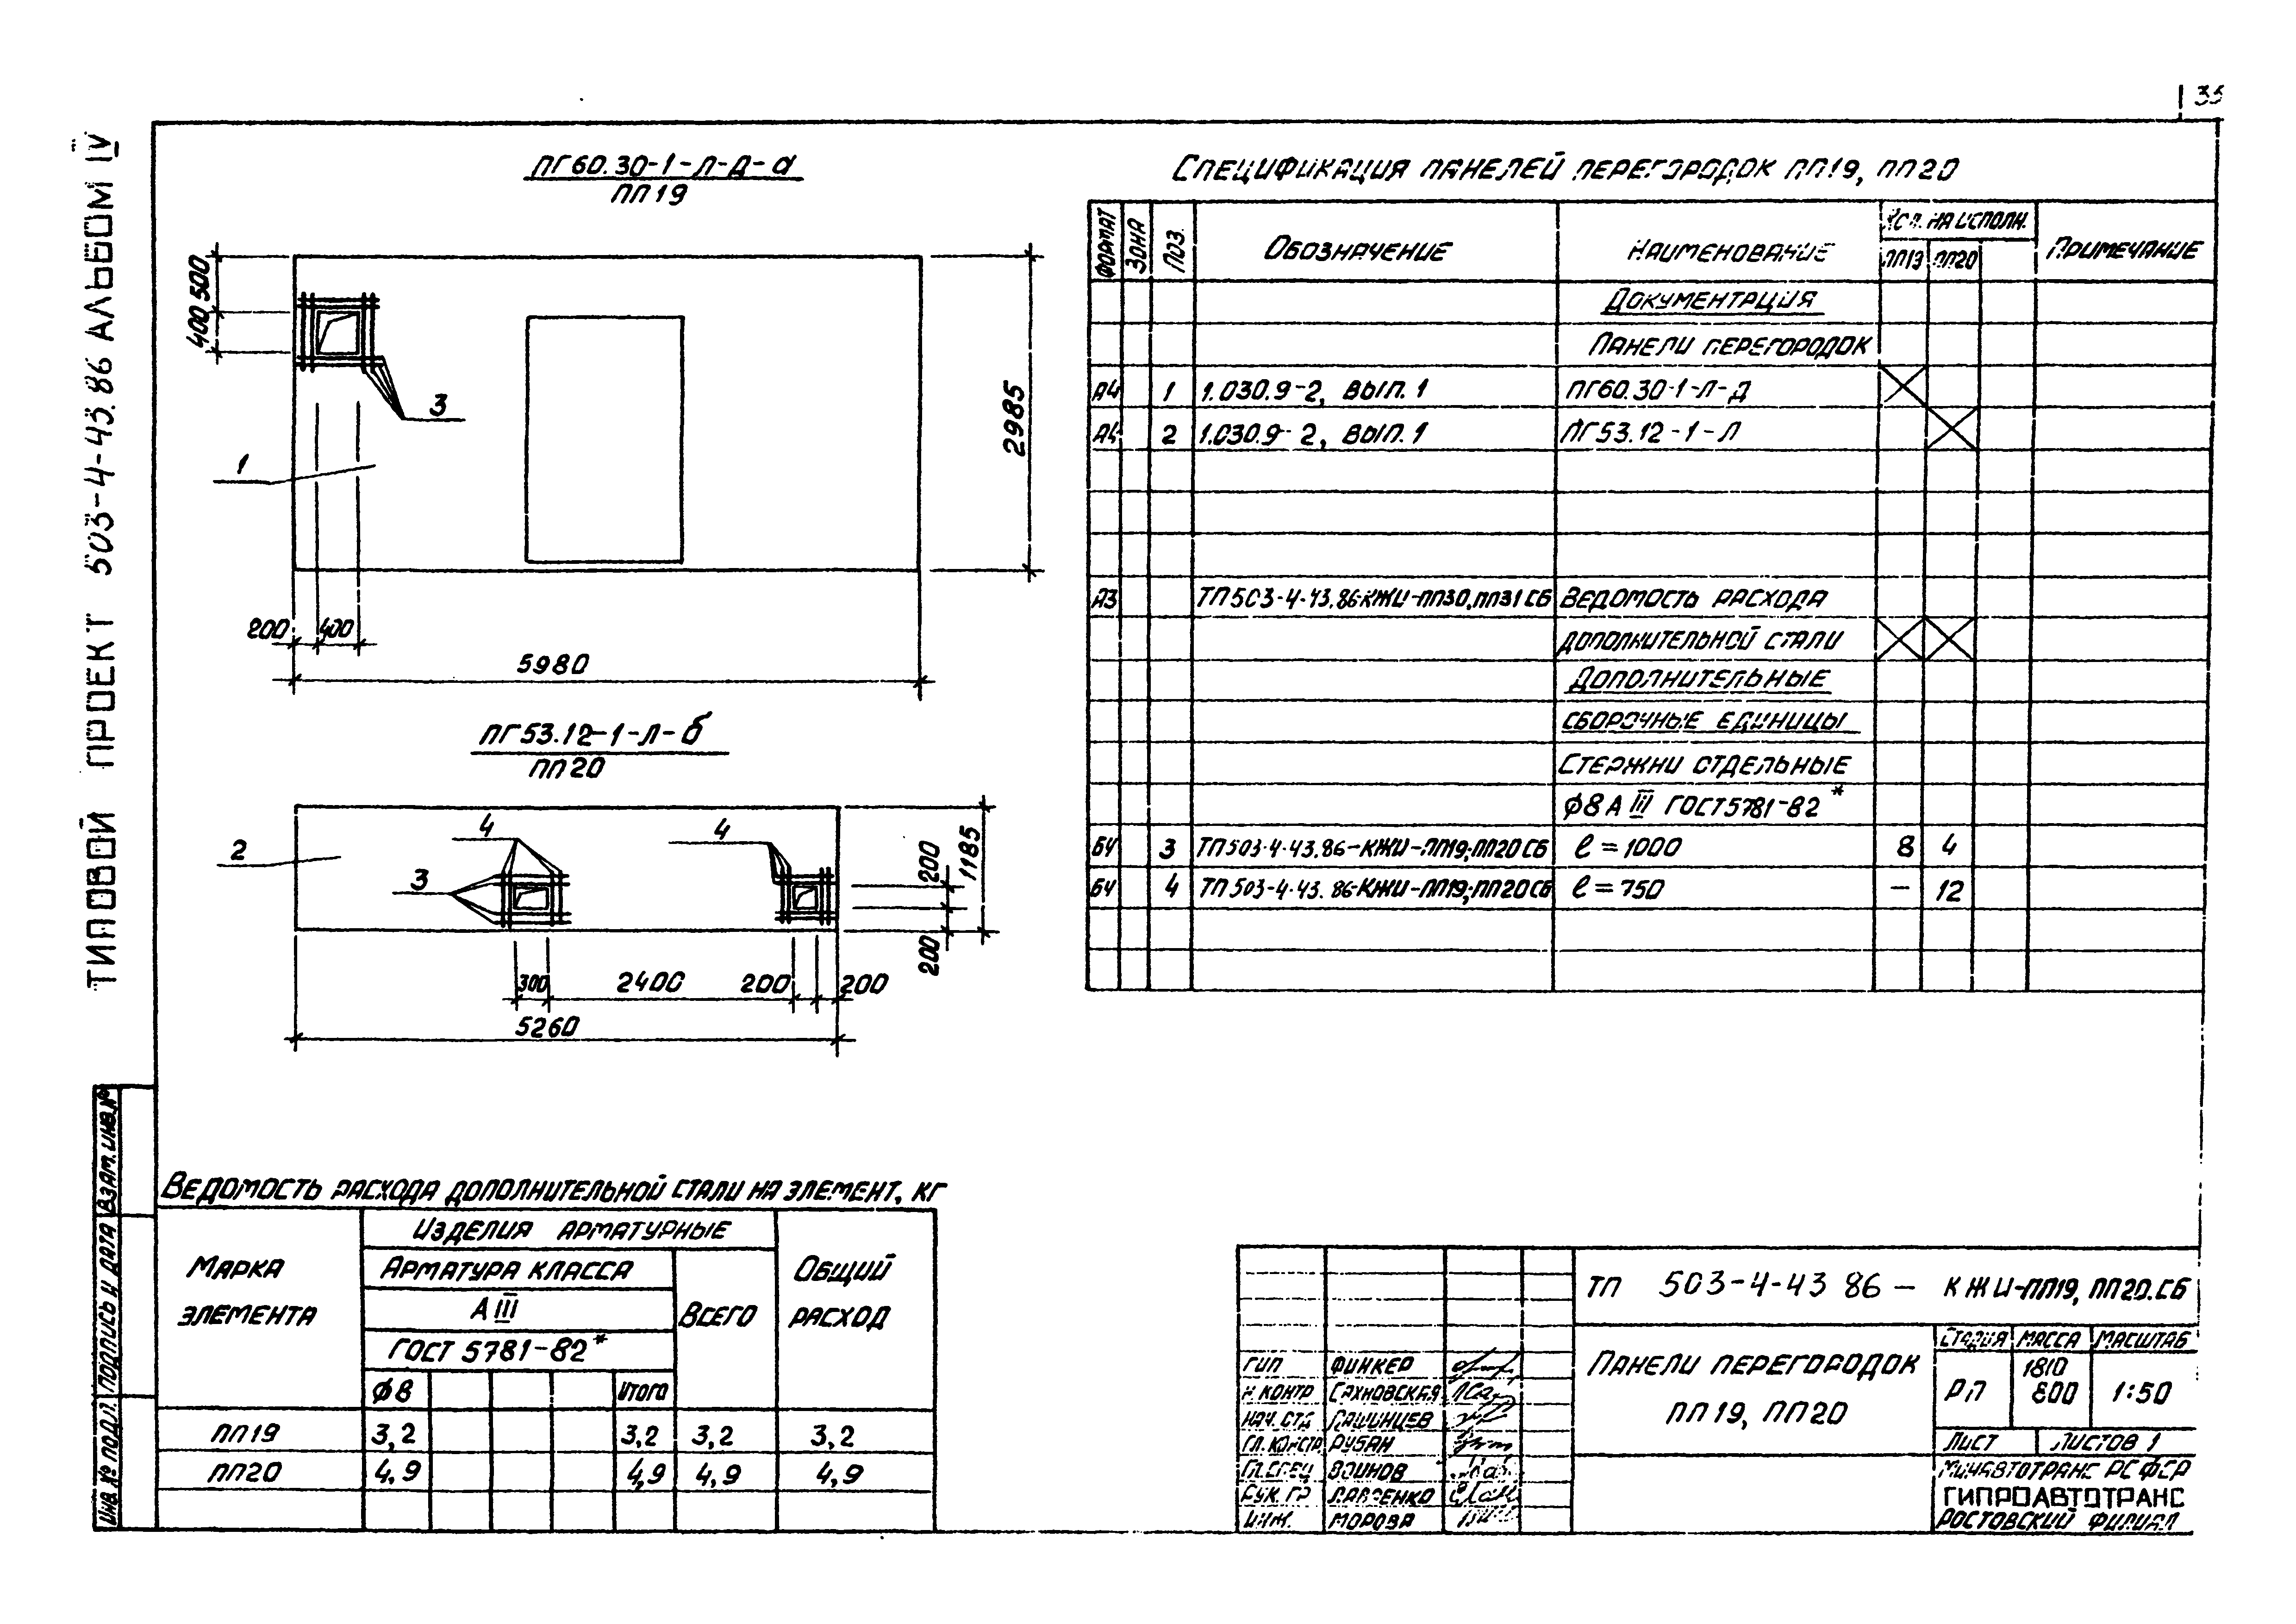 35
ТИПОВОЙ ПРОЕКТ 503-4-43.86 АЛЬБОМ IV
ПГ60.30-1-Л-Д-а
ПП19
500
400
3
1
2985
200 400
5980
ПГ53.12-1-Л-б
ПП20
4
4
2
3
200
1185
200
300 2400 200 200
5260
СПЕЦИФИКАЦИЯ ПАНЕЛЕЙ ПЕРЕГОРОДОК ПП19, ПП20
ФОРМАТ ЗОНА ПОЗ. ОБОЗНАЧЕНИЕ НАИМЕНОВАНИЕ КОЛ. НА ИСПОЛН. ПРИМЕЧАНИЕ
ПП19 ПП20
ДОКУМЕНТАЦИЯ
ПАНЕЛИ ПЕРЕГОРОДОК
А4 1 1.030.9-2, ВЫП. 1 ПГ60.30-1-Л-Д
А4 2 1.030.9-2, ВЫП. 1 ПГ53.12-1-Л
А3 ТП503-4-43.86-КЖИ-ПП30, ПП31 СБ ВЕДОМОСТЬ РАСХОДА
ДОПОЛНИТЕЛЬНОЙ СТАЛИ
ДОПОЛНИТЕЛЬНЫЕ
СБОРОЧНЫЕ ЕДИНИЦЫ
СТЕРЖНИ ОТДЕЛЬНЫЕ
ф8 А III ГОСТ 5781-82*
БЧ 3 ТП503-4-43.86-КЖИ-ПП19; ПП20 СБ ℓ=1000 8 4
БЧ 4 ТП503-4-43.86-КЖИ-ПП19; ПП20 СБ ℓ=750 — 12
ВЕДОМОСТЬ РАСХОДА ДОПОЛНИТЕЛЬНОЙ СТАЛИ НА ЭЛЕМЕНТ, КГ
МАРКА ЭЛЕМЕНТА
ИЗДЕЛИЯ АРМАТУРНЫЕ
АРМАТУРА КЛАССА
А III
ГОСТ 5781-82*
ф8 ИТОГО
ВСЕГО
ОБЩИЙ РАСХОД
ПП19 3,2 3,2 3,2 3,2
ПП20 4,9 4,9 4,9 4,9
ВЗАМ. ИНВ. №
ПОДПИСЬ И ДАТА
ИНВ. № ПОДЛ.
ТП 503-4-43 86 — КЖИ-ПП19, ПП20.СБ
ПАНЕЛИ ПЕРЕГОРОДОК
ПП19, ПП20
СТАДИЯ МАССА МАСШТАБ
РП 1810 800 1:50
ЛИСТ ЛИСТОВ 1
МИНАВТОТРАНС РСФСР
ГИПРОАВТОТРАНС
РОСТОВСКИЙ ФИЛИАЛ
ГИП ФИНКЕР
Н. КОНТР САХНОВСКАЯ
НАЧ. ОТД ПАШИНЦЕВ
ГЛ. КОНСТР РУБАН
ГЛ. СПЕЦ ВОИНОВ
РУК. ГР ЛАВРЕНКО
ИНЖ. МОРОВА